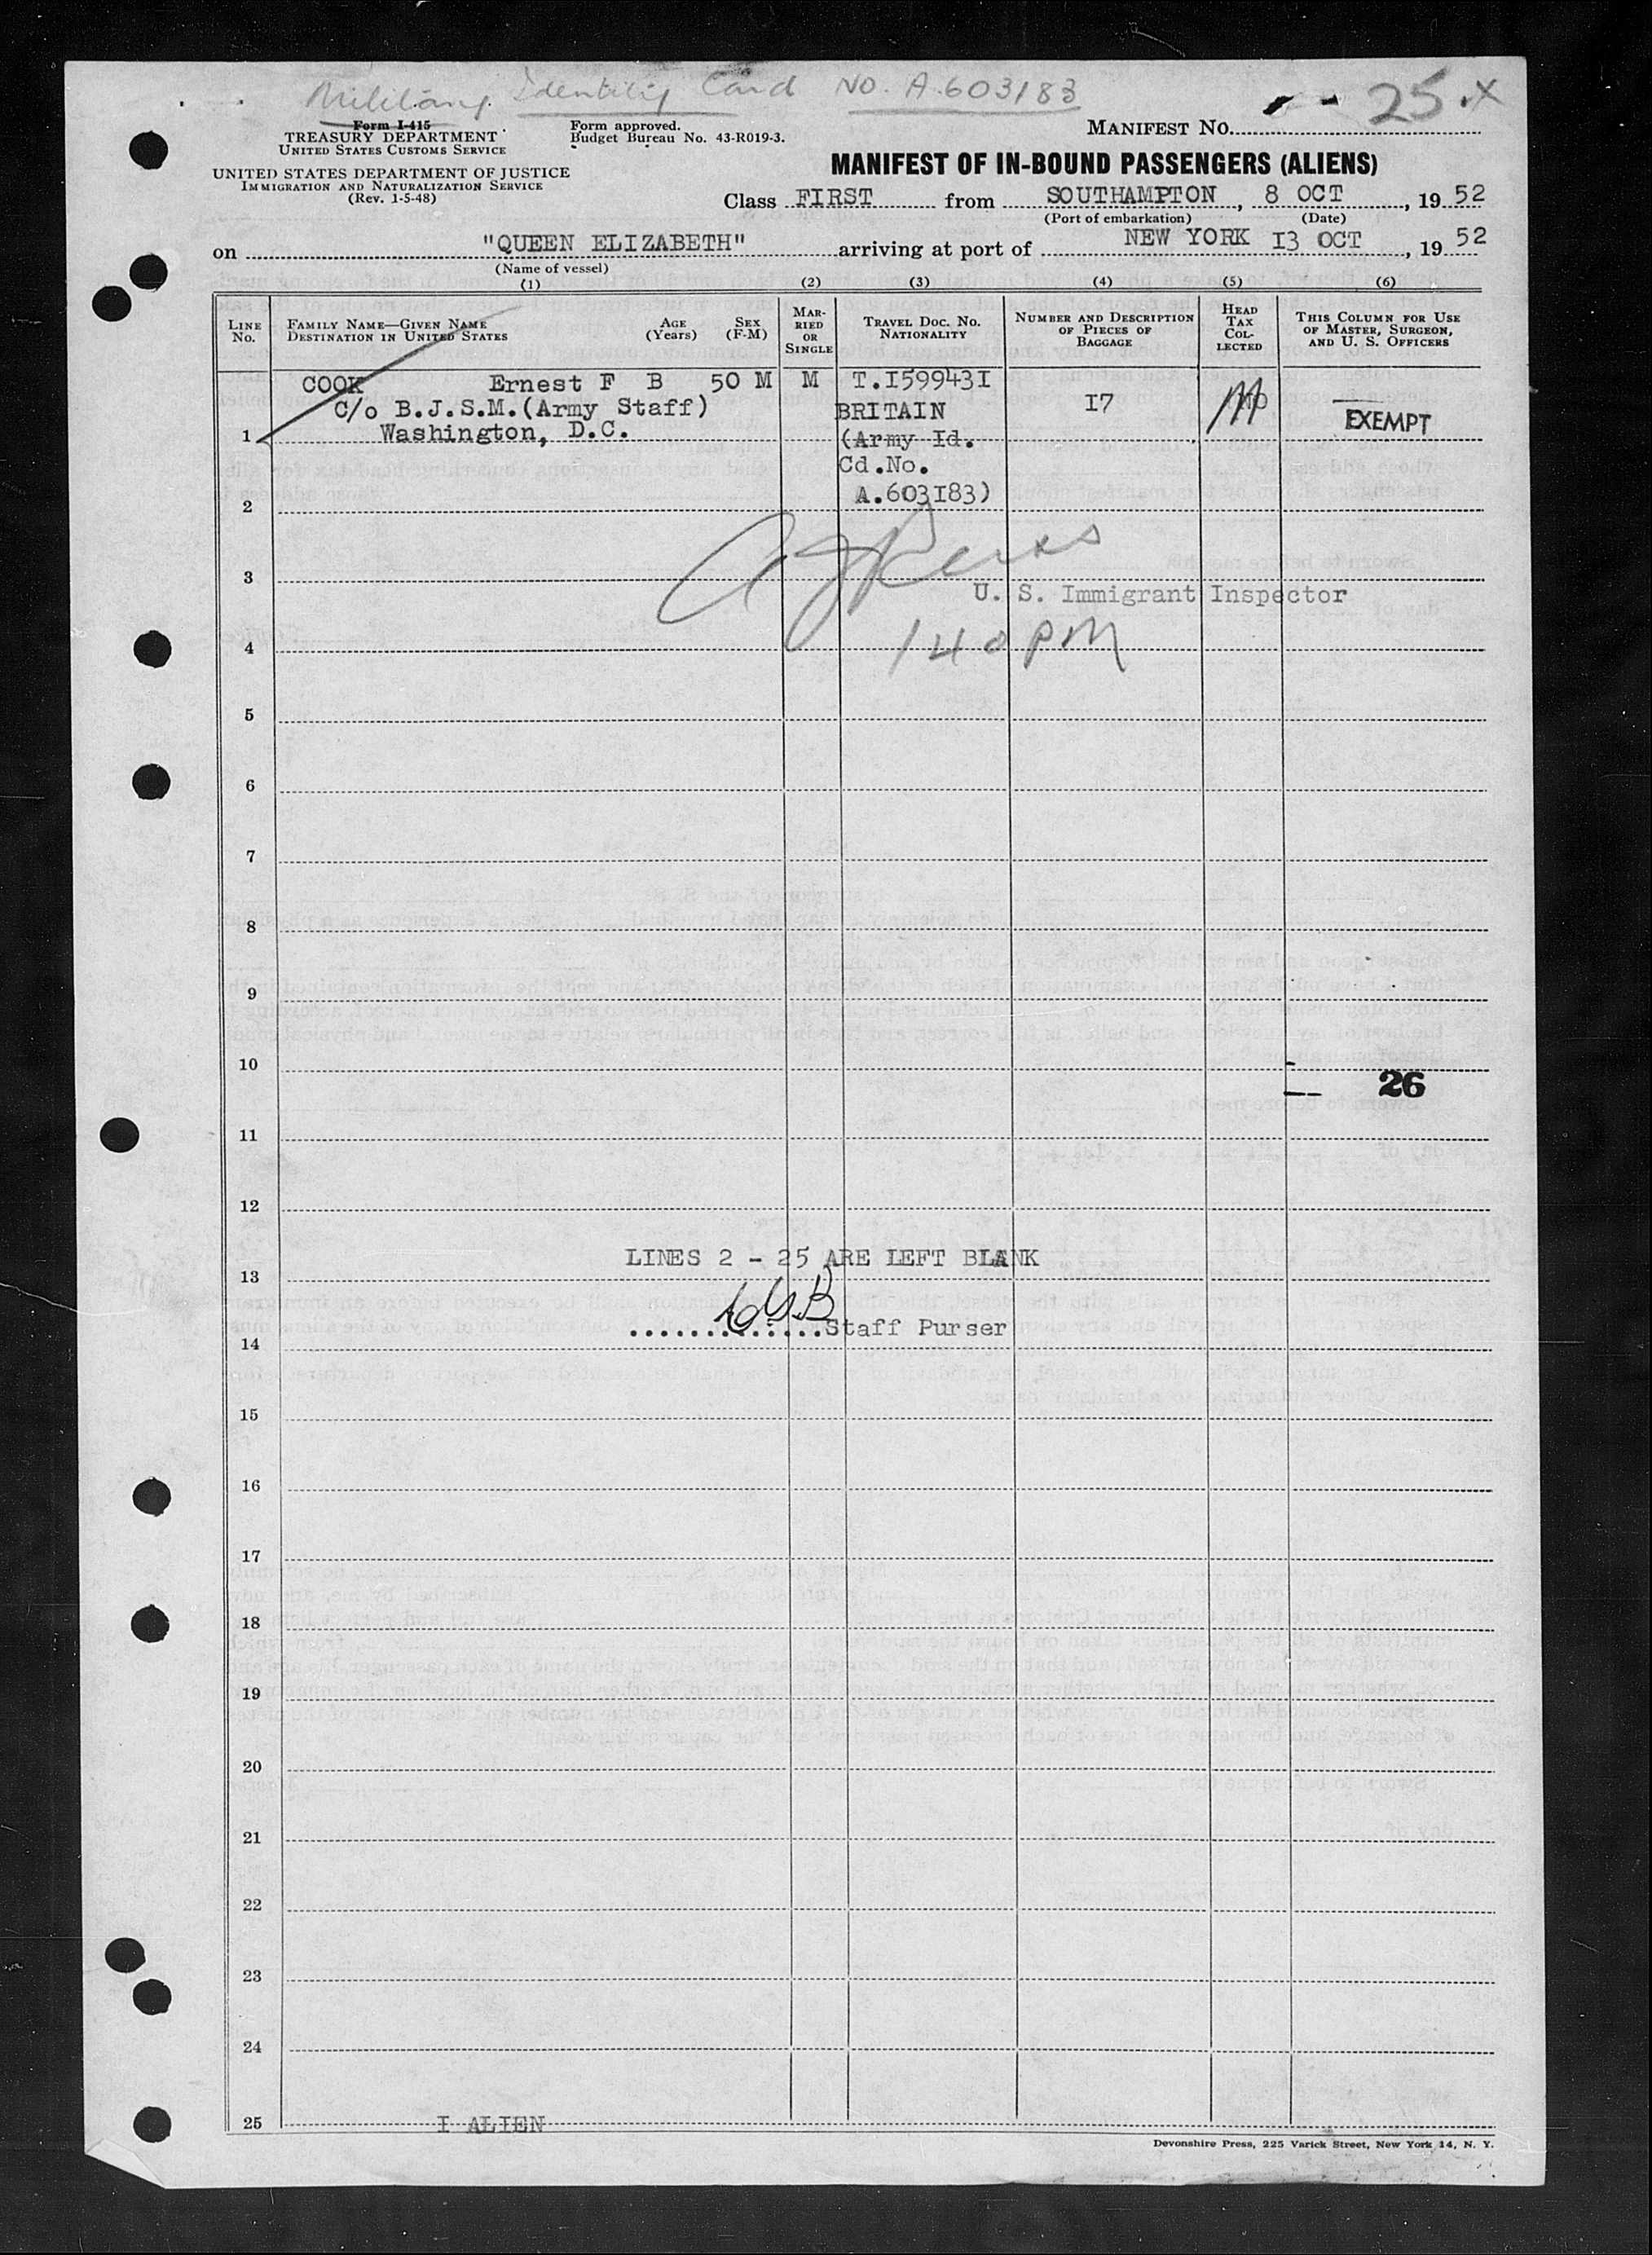 Military Identity Card No. A.603183
25 x
Form I-415
TREASURY DEPARTMENT
UNITED STATES CUSTOMS SERVICE
UNITED STATES DEPARTMENT OF JUSTICE
IMMIGRATION AND NATURALIZATION SERVICE
(Rev. 1-5-48)
Form approved.
Budget Bureau No. 43-R019-3.
MANIFEST NO.
MANIFEST OF IN-BOUND PASSENGERS (ALIENS)
Class FIRST from SOUTHAMPTON, 8 OCT, 19 52
(Port of embarkation) (Date)
on "QUEEN ELIZABETH" arriving at port of NEW YORK I3 OCT, 19 52
(Name of vessel)
(1) (2) (3) (4) (5) (6)
LINE NO.
FAMILY NAME—GIVEN NAME
DESTINATION IN UNITED STATES
AGE (Years)
SEX (F-M)
MARRIED OR SINGLE
TRAVEL DOC. NO.
NATIONALITY
NUMBER AND DESCRIPTION OF PIECES OF BAGGAGE
HEAD TAX COLLECTED
THIS COLUMN FOR USE OF MASTER, SURGEON, AND U. S. OFFICERS
COOK Ernest F B 50 M M T.I59943I
C/o B.J.S.M.(Army Staff) BRITAIN I7 EXEMPT
1 Washington, D.C. (Army Id.
Cd.No.
2 A.603I83)
3
U. S. Immigrant Inspector
4 140 PM
5
6
7
8
9
10
26
11
12
LINES 2 - 25 ARE LEFT BLANK
13
Staff Purser
14
15
16
17
18
19
20
21
22
23
24
25 I ALIEN
Devonshire Press, 225 Varick Street, New York 14, N. Y.